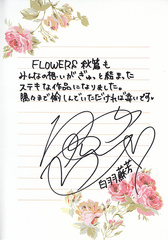 FLOWERS 秋篇も
みんなの想いがぎゅっと詰まった
ステキな作品になりました。
隅々まで愉しんでいただければ幸いです
白羽蘇芳